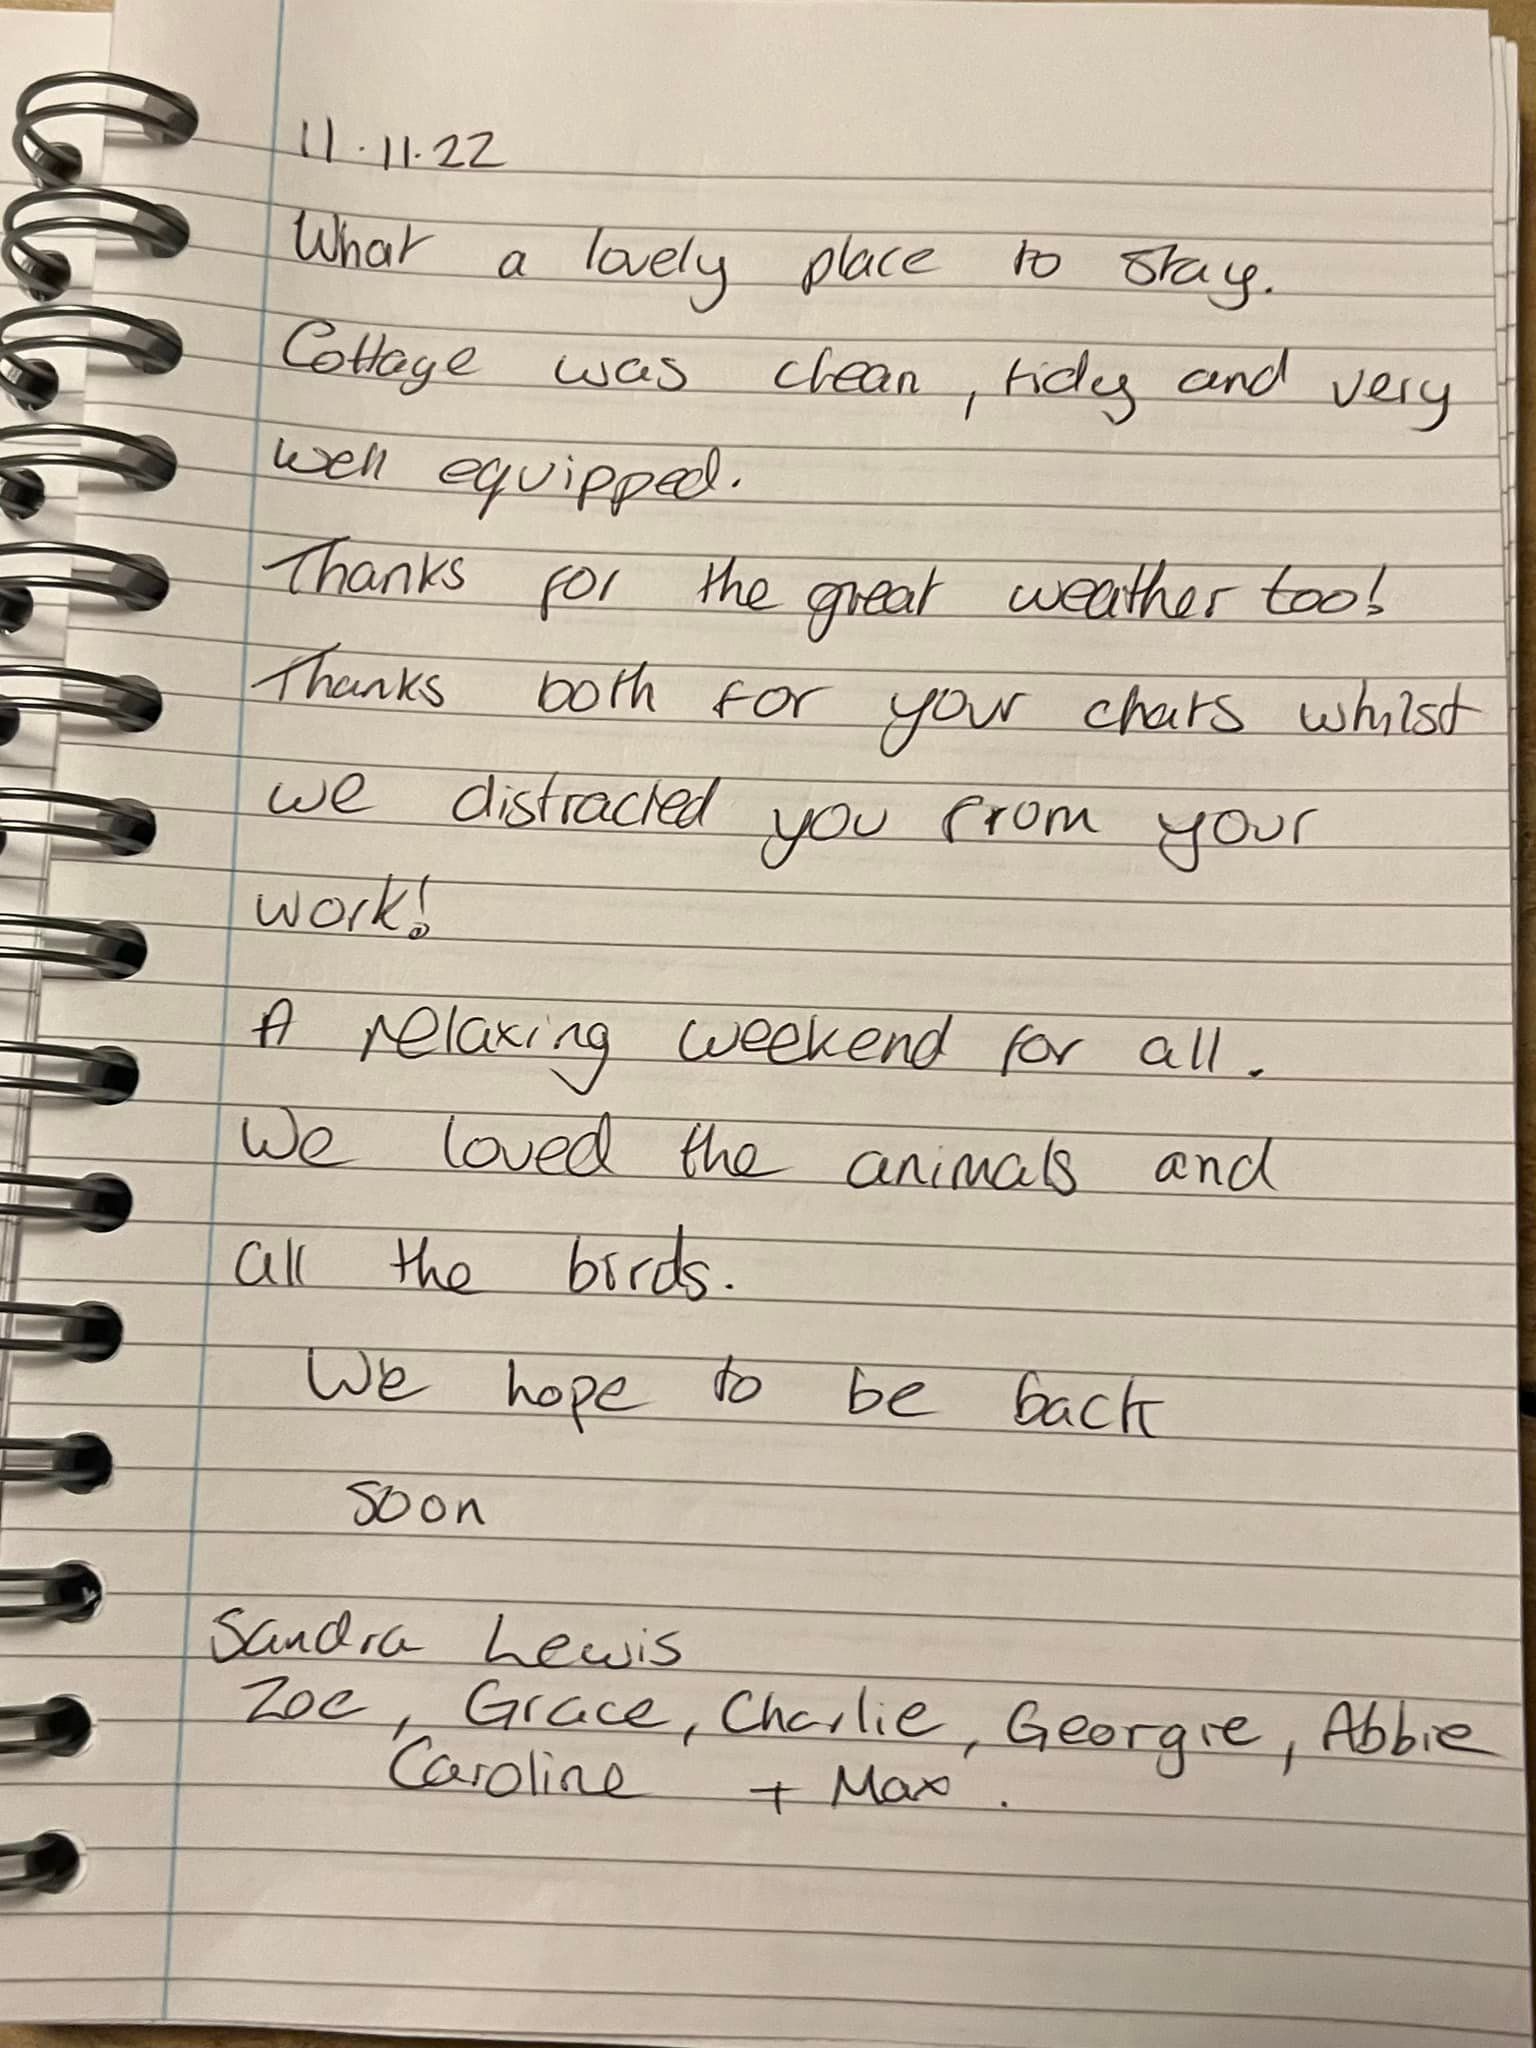 11.11.22
What a lovely place to stay.
Cottage was clean, tidy and very
well equipped.
Thanks for the great weather too!
Thanks both for your chats whilst
we distracted you from your
work!
A relaxing weekend for all.
We loved the animals and
all the birds.
We hope to be back
soon
Sandra Lewis
Zoe, Grace, Charlie, Georgie, Abbie
Caroline + Max.